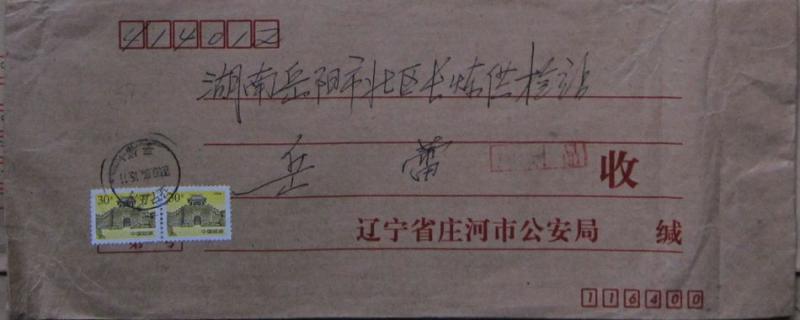 414012
湖南岳阳市北区长炼供检站
岳 蕾 收
30 30
中国邮政 中国邮政
辽宁省庄河市公安局 缄
116400